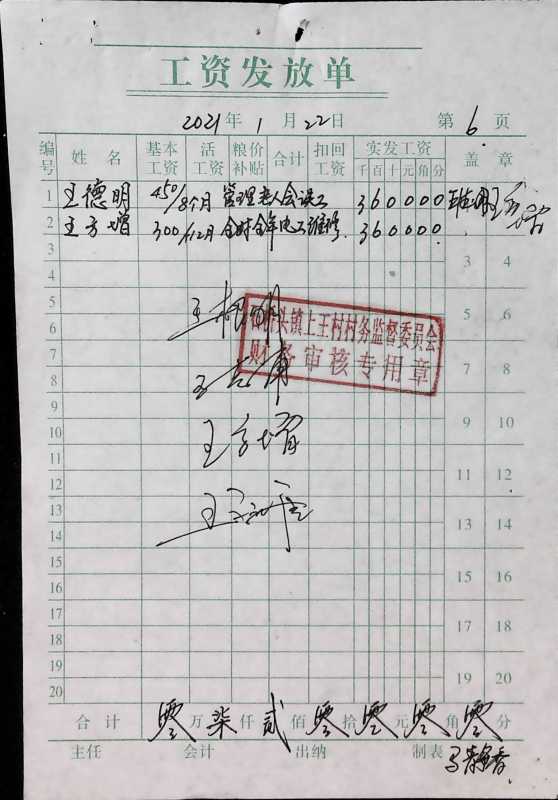 工资发放单
2021年1月22日 第6页
编号 姓名 基本工资 活工资 粮价补贴 合计 扣回工资 实发工资 千百十元角分 盖章
1 王德明 450/8个月 管理老人会误工 360000
2 王方增 300/12月 全时全年电工维修 360000
3 3 4
4
5 5 6
6
7 7 8
8
9 9 10
10
11 11 12
12
13 13 14
14
15 16
17 17 18
18
19 19 20
20
头镇上王村村务监督委员会
财务审核专用章
合计 零万柒仟贰佰零拾零元零角零分
主任 会计 出纳 制表